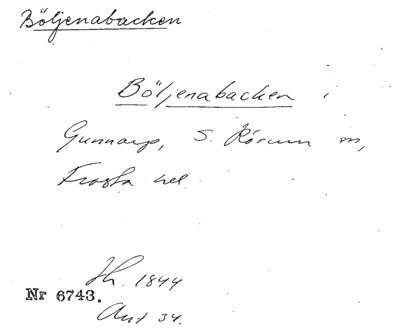 Böljenabacken
Böljenabacken i
Gunnarp, S. Rörum sn,
Frosta hd.
Jh. 1844
Nr 6743.
Ant 34.